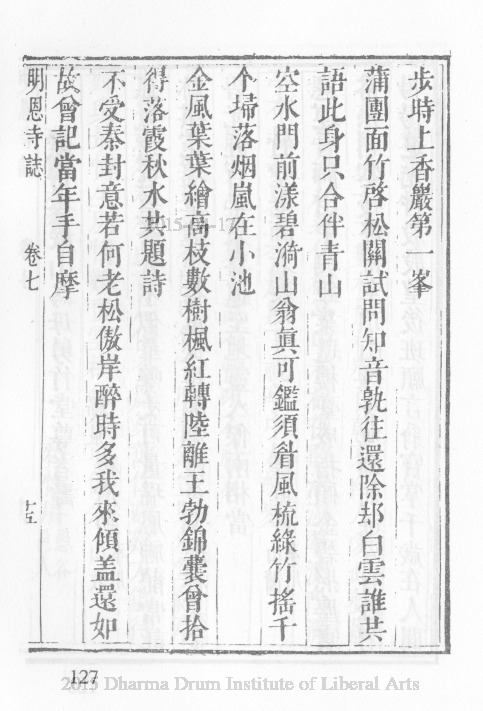 步時上香巖第一峯
蒲團面竹啓松關試問知音孰往還除却白雲誰共
語此身只合伴青山
空水門前漾碧漪山翁眞可鑑須眉風梳綠竹搖千
个埽落烟嵐在小池
金風葉葉繪高枝數樹楓紅轉陸離王勃錦囊曾拾
得落霞秋水共題詩
不受秦封意若何老松傲岸醉時多我來傾盖還如
故曾記當年手自摩
明恩寺誌 卷七 十五
127
2015 Dharma Drum Institute of Liberal Arts